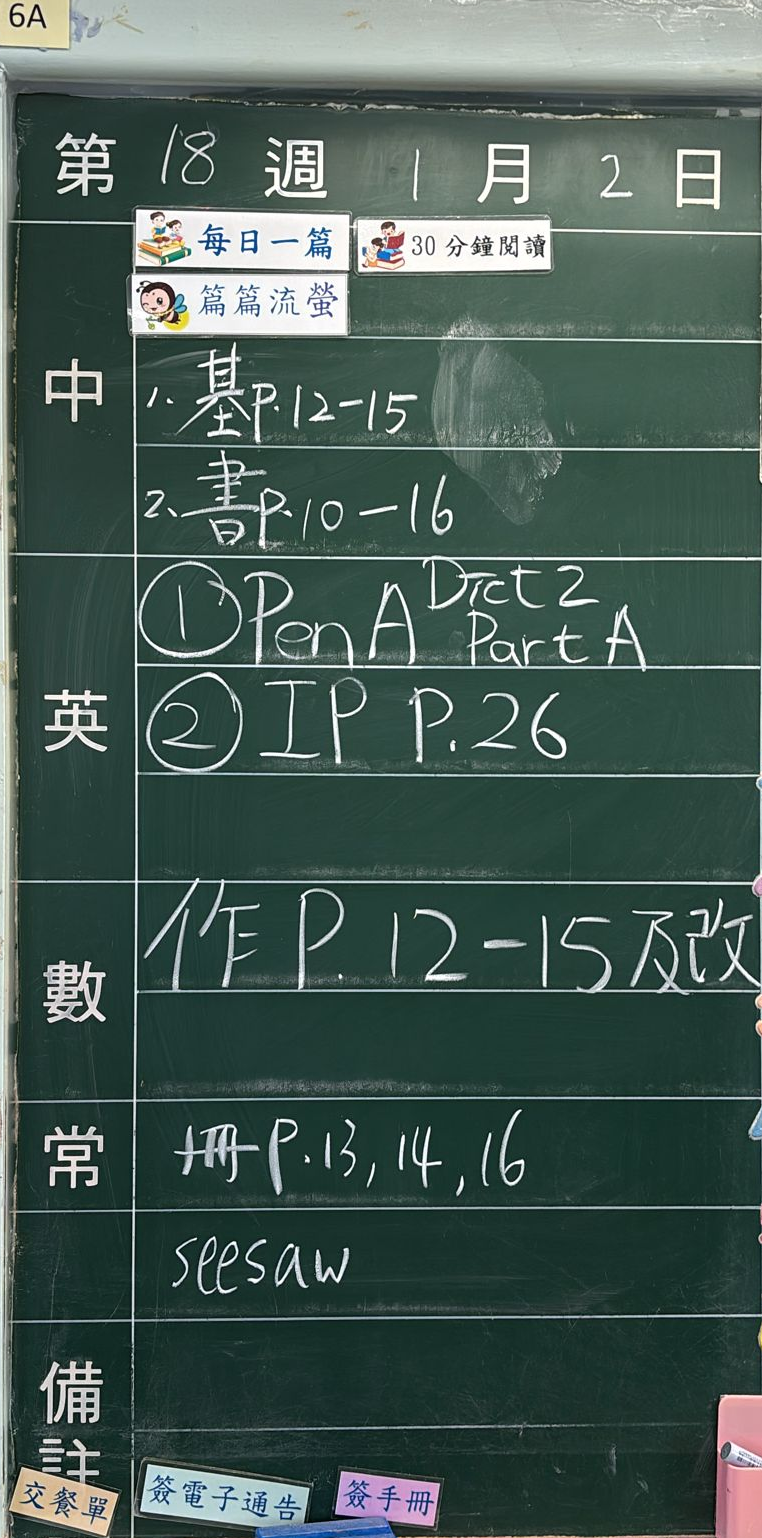 6A
第 18 週 1 月 2 日
每日一篇 30分鐘閱讀
篇篇流螢
中
1. 基P.12-15
2、書P.10-16
英
① Pen A Dict 2 Part A
② IP P.26
數
作 P. 12-15及改
常
冊P.13, 14, 16
seesaw
備註
交餐單 簽電子通告 簽手冊